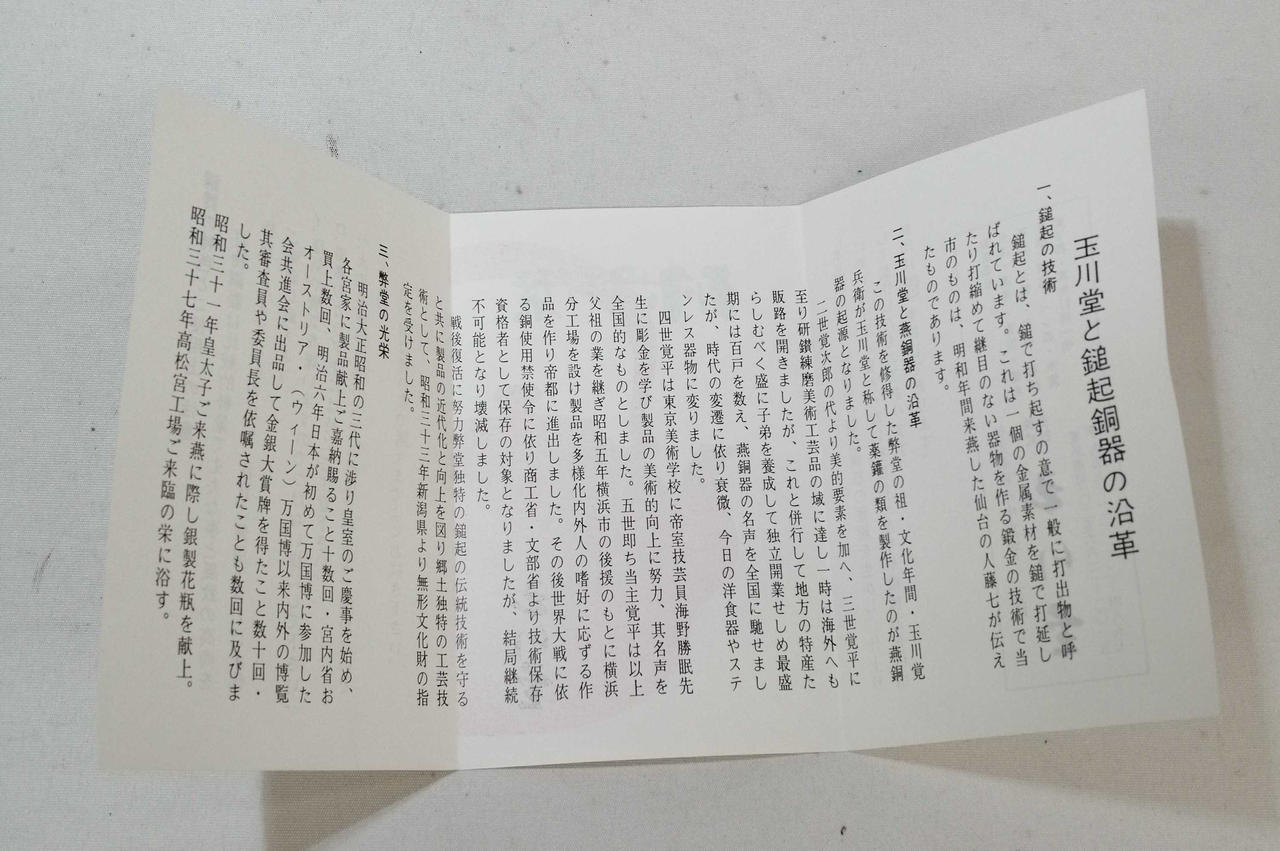 玉川堂と鎚起銅器の沿革
一、鎚起の技術
鎚起とは、鎚で打ち起すの意で一般に打出物と呼
ばれています。これは一個の金属素材を鎚で打延し
たり打縮めて継目のない器物を作る鍛金の技術で当
市のものは、明和年間来燕した仙台の人藤七が伝え
たものであります。
二、玉川堂と燕銅器の沿革
この技術を修得した弊堂の祖・文化年間・玉川覚
兵衛が玉川堂と称して薬鑵の類を製作したのが燕銅
器の起源となりました。
二世覚次郎の代より美的要素を加へ、三世覚平に
至り研鑚練磨美術工芸品の域に達し一時は海外へも
販路を開きましたが、これと併行して地方の特産た
らしむべく盛に子弟を養成して独立開業せしめ最盛
期には百戸を数え、燕銅器の名声を全国に馳せまし
たが、時代の変遷に依り衰微、今日の洋食器やステ
ンレス器物に変りました。
四世覚平は東京美術学校に帝室技芸員海野勝眠先
生に彫金を学び製品の美術的向上に努力、其名声を
全国的なものとしました。五世即ち当主覚平は以上
父祖の業を継ぎ昭和五年横浜市の後援のもとに横浜
分工場を設け製品を多様化内外人の嗜好に応ずる作
品を作り帝都に進出しました。その後世界大戦に依
る銅使用禁使令に依り商工省・文部省より技術保存
資格者として保存の対象となりましたが、結局継続
不可能となり壊滅しました。
戦後復活に努力弊堂独特の鎚起の伝統技術を守る
と共に製品の近代化と向上を図り郷土独特の工芸技
術として、昭和三十三年新潟県より無形文化財の指
定を受けました。
三、弊堂の光栄
明治大正昭和の三代に渉り皇室のご慶事を始め、
各宮家に製品献上ご嘉納賜ること十数回・宮内省お
買上数回、明治六年日本が初めて万国博に参加した
オーストリア・（ウィーン）万国博以来内外の博覧
会共進会に出品して金銀大賞牌を得たこと数十回・
其審査員や委員長を依嘱されたことも数回に及びま
した。
昭和三十一年皇太子ご来燕に際し銀製花瓶を献上。
昭和三十七年高松宮工場ご来臨の栄に浴す。